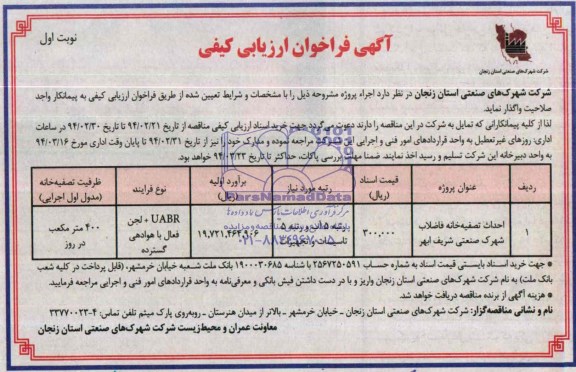 نوبت اول
آگهی فراخوان ارزیابی کیفی
شرکت شهرک‌های صنعتی استان زنجان
شرکت شهرک‌های صنعتی استان زنجان در نظر دارد اجراء پروژه مشروحه ذیل را با مشخصات و شرایط تعیین شده از طریق فراخوان ارزیابی کیفی به پیمانکار واجد
صلاحیت واگذار نماید.
لذا از کلیه پیمانکارانی که تمایل به شرکت در این مناقصه را دارند دعوت میگردد جهت خرید اسناد ارزیابی کیفی مناقصه از تاریخ ۹۴/۰۲/۲۱ تا تاریخ ۹۴/۰۲/۳۰ در ساعات
اداری: روزهای غیرتعطیل به واحد قراردادهای امور فنی و اجرایی این مراجعه نموده و مدارک خود را نیز از تاریخ ۹۴/۰۲/۳۱ تا پایان وقت اداری مورخ ۹۴/۰۳/۱۶
به واحد دبیرخانه این شرکت تسلیم و رسید اخذ نمایند. ضمنا مهلت بررسی پاکات، حداکثر تا تاریخ ۹۴/۰۳/۲۳ خواهد بود.
ردیف عنوان پروژه قیمت اسناد (ریال) رتبه مورد نیاز برآورد اولیه (ریال) نوع فرایند ظرفیت تصفیه‌خانه (مدول اول اجرایی)
۱ احداث تصفیه‌خانه فاضلاب شهرک صنعتی شریف ابهر ۳۰۰,۰۰۰ رتبه ۵ آب و رتبه ۵ تاسیسات و تجهیزات ۱۹,۷۲۱,۴۶۲,۹۰۶ UABR + لجن فعال با هوادهی گسترده ۴۰۰ متر مکعب در روز
ParsNamadData
مرکز فرآوری اطلاعات پارس نماد داده ها
۰۲۱-۸۸۳۴۹۶۷۰-۵
* جهت خرید اسناد بایستی قیمت اسناد به شماره حساب ۲۵۶۷۲۵۰۵۹۱ با شناسه ۱۹۰۰۰۳۰۶۸۵ بانک ملت شعبه خیابان خرمشهر، (قابل پرداخت در کلیه شعب
بانک ملت) به نام شرکت شهرک‌های صنعتی استان زنجان واریز و با در دست داشتن فیش بانکی و معرفی‌نامه به واحد قراردادهای امور فنی و اجرایی مراجعه فرمایید.
* هزینه آگهی از برنده مناقصه دریافت خواهد شد.
نام و نشانی مناقصه‌گزار: شرکت شهرک‌های صنعتی استان زنجان ـ خیابان خرمشهر ـ بالاتر از میدان هنرستان ـ روبه‌روی پارک میثم تلفن تماس: ۴-۳۳۷۷۰۰۲۳
معاونت عمران و محیط‌زیست شرکت شهرک‌های صنعتی استان زنجان